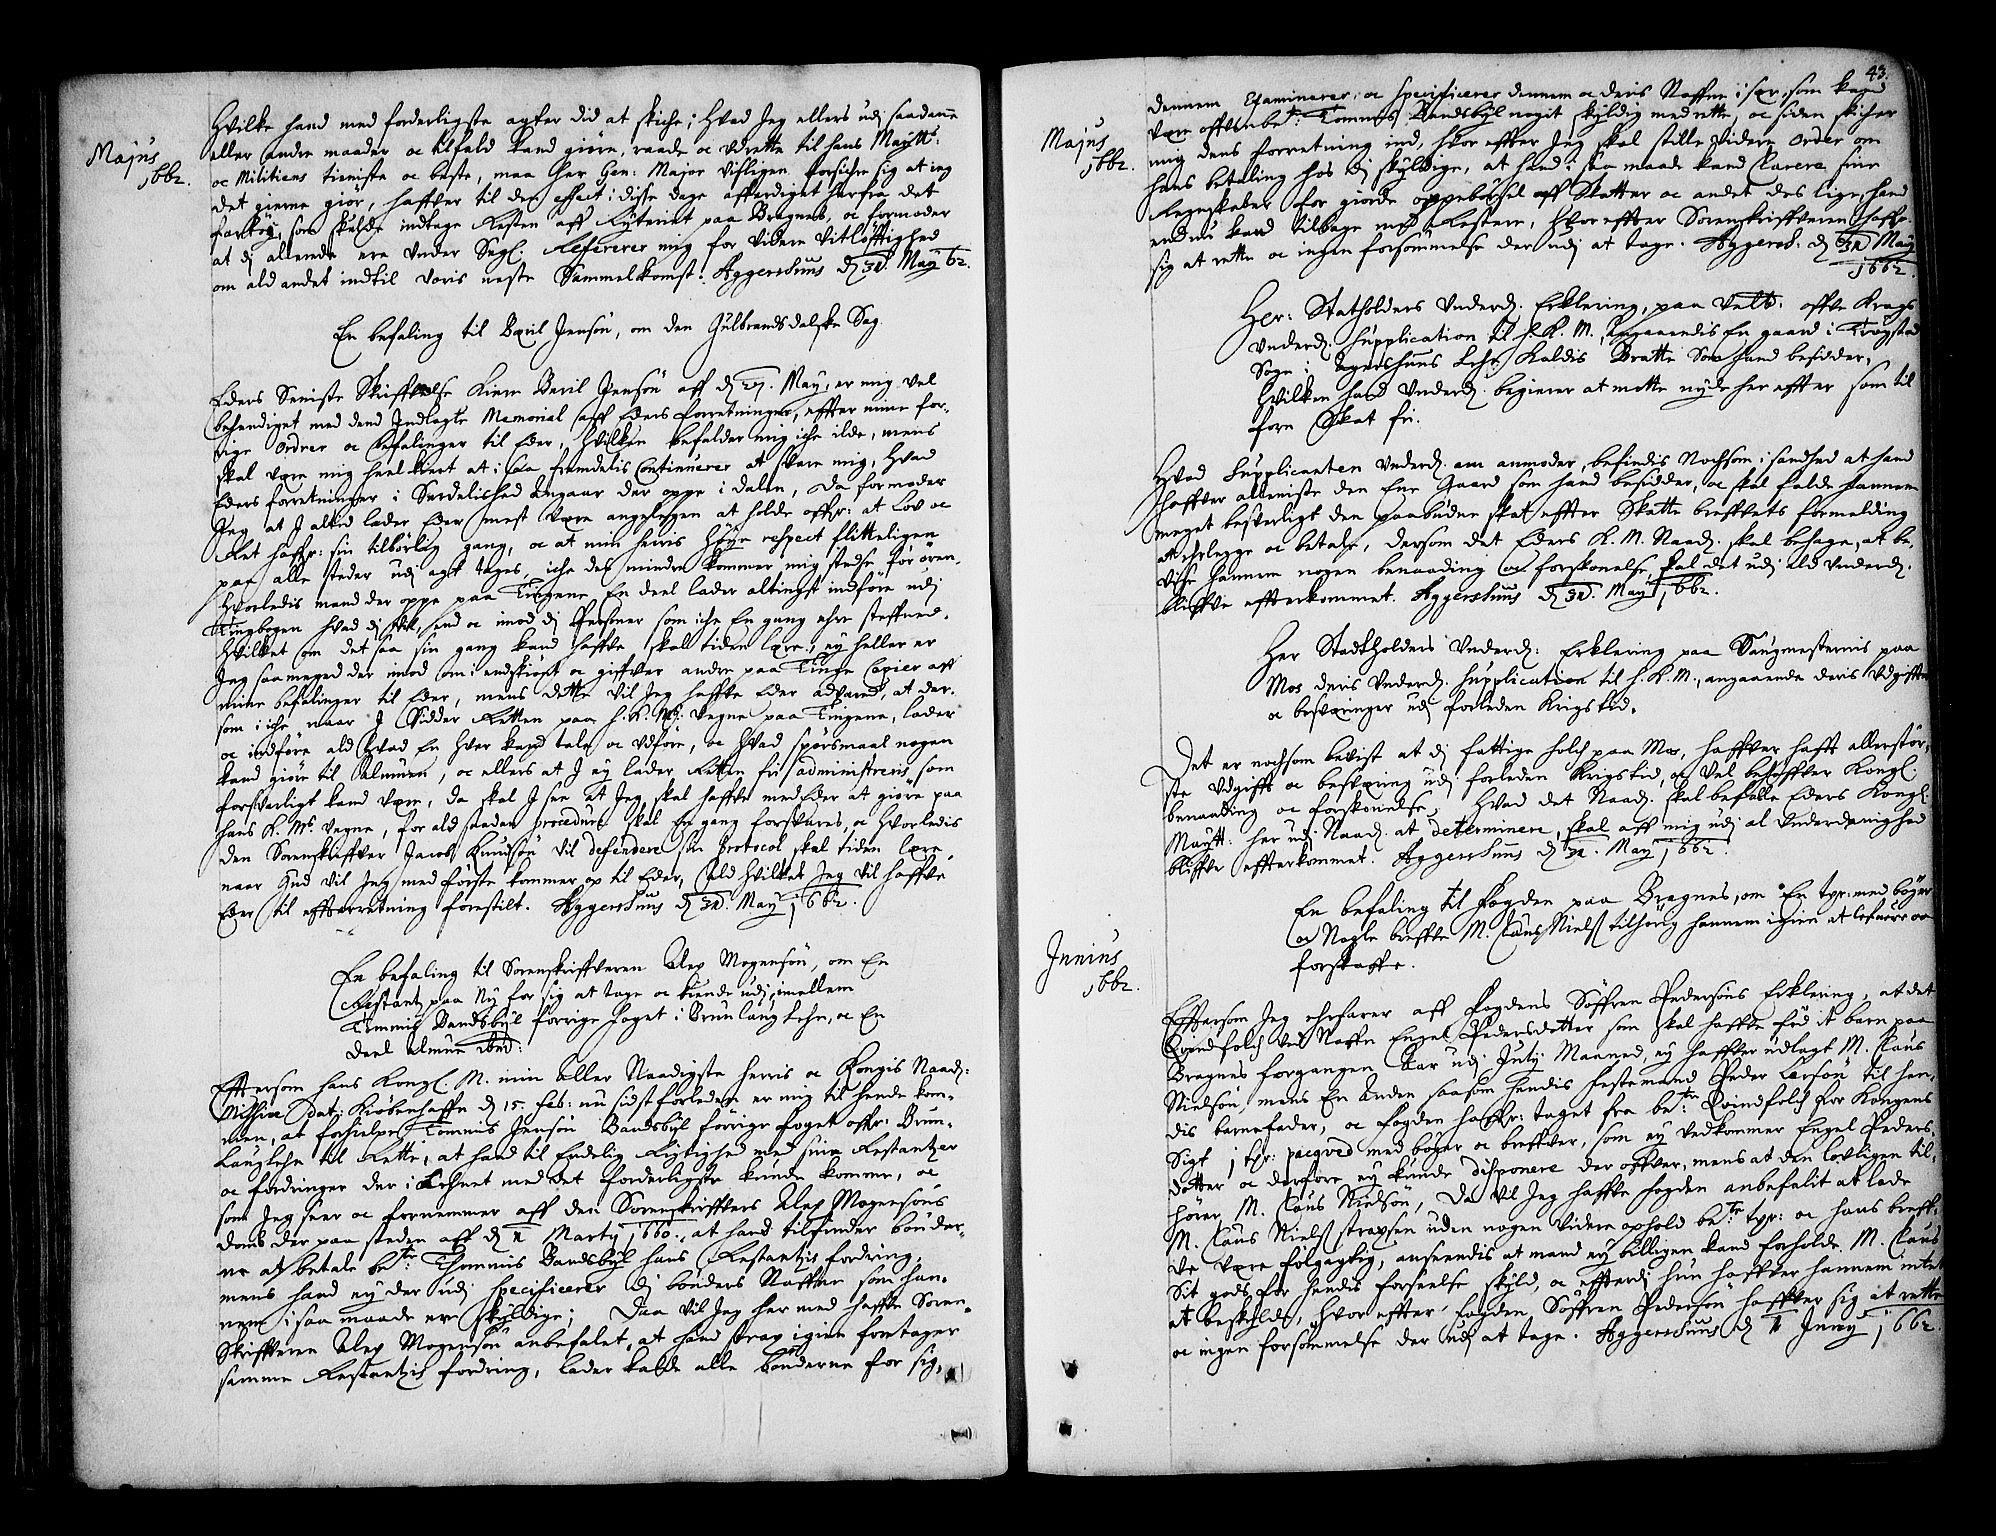 Majus
1662.
Hvilke hand med forderligste agter did at skiche; Hvad Jeg ellers udj saadanne
eller andre maader oc tilfald kand giøre, raade oc udrette til hans Maytts:
oc Militiens tieniste oc beste, maa Her Gen: Major visseligen forsichre sig at ieg
det gierne giør, haffver til den effect i disse dage afferdiget herfra det
fartøy, som skulde indtage Resten aff Rytteriet paa Bragnes, oc formoder
at dj allerede ere under Segl. Refererer mig for videre vitløfftighed
om ald andet indtil voris neste Sammelkomst. Aggershuus d. 31. May 62.
En befaling til Boril Jensøn, om den Gulbrandsdalske Sag
Eders Seniste Skriffvelse kiere Boril Jensøn aff d. 27. May, er mig vel
behendiget med dend Indlagte Memorial aff Eders forretninger, effter mine for-
rige ordrer oc befalinger til Eder, hvilken befalder mig iche ilde, mens
skal være mig heel kiert at i saa fremdelis Continuerer at skrive mig, hvad
Eders forretninger i Særdelished angaar der oppe i dalen, da formoder
Jeg at J altid lader Eder mest være angelegen at holde offver at Lov oc
Ret haffver sin tilbørlig gang, oc at min herris Høye respect flitteligen
paa alle steder udj agt tages, iche des mindre kommer mig stedse for øren,
hvorledis mand der oppe paa Tingene En deel lader altingst indføre udj
Tingbogen hvad dj vil, end oc imod dj Personer som iche En gang ehre steffned.
hvilket om det saa sin gang kand haffve, skal tiden lære, ey heller er
Jeg saa meget der imod om i endskiønt oc giffver andre paa Tinge Copier aff
mine befalinger til Eder, mens dette vil Jeg haffve Eder advaret, at der-
som i iche naar J Sidder Retten paa H. K. Ms. vegne paa Tingene, lader
oc indføre ald hvad En hver kand tale oc udføre, oc hvad spørsmaal nogen
kand giøre til Almuen, oc ellers at J ey lader Retten fri administreris som
forsvarligt kand være, da skal J see at Jeg skal haffve med Eder at giøre paa
hans K. Ms. vegne, for ald saadan procedure skal En gang forsvares, oc hvorledis
den Sorenskriffver Jacob Knudsøn vil defendere sin Protocol skal tiden lære
naar Gud vil Jeg med første kommer op til Eder, ald hvilket Jeg vil haffve
Eder til effterretning forestilt. Aggershuus d. 31. May 1662.
En befaling til Sorenskriffveren Alex Mogensøn, om En
Restantz paa Ny for sig at tage oc kiende udj, imellem
Tommis Bandsbyl forrige foget i Brunlaug Lehn, oc En
deel Almue ibid:
Effttersom hans Kongl. M. min Aller Naadigste Herris oc Kongis Naad.
Missive dat: Kiøbenhaffn d. 15. Feb: nu sidstforleden er mig til hende kom-
men, at forhielpe Tommis Jensøn Bandsbyl forrige foget offr. Brun-
laug lehn til Rette, at hand til Endelig Rigtighed med sine Restantzer
oc fordringer der i Lehnet med det forderligste kunde komme, oc
som Jeg seer oc fornemmer aff den Sorenskriffvers Alex Mogensøns
doms der paa steden aff d. 2. Marty 1660., at hand tilfinder bønder-
ne at betale bete: Thommis Bandsbyl hans Restantzis fordring,
mens hand ey der udj specificerer dj bønders Naffne som han-
nem i saa maade ere skyldige; Daa vil Jeg her med haffve Soren-
skriffveren Alex Mogensøn anbefalet, at hand strax igien foretager
samme Restantzis fordring, lader kalde alle bønderne for sig,
43.
Majus
1662.
dennem Examinerer, oc specificerer dennem oc deris Naffne i sær, som kand
være offvenbete: Tommis Bandsbyl nogit skyldig med rette, oc siden skicher
mig dens forretning ind, hvor effter Jeg skal stille videre order om
hans betaling hos dj skyldige, at hand i saa maade kand Clarere sine
Regenskaber for giorde oppebørsel aff Skatter oc andet des lige hand
endnu kand tilbage med Restere, hvor effter Sorenskriffveren haffr.
sig at rette oc ingen forsømmelse der udj at tage. Aggersh. d. 31. May
1662.
Her: Statholders Underd. Erklering, paa Velb. offve Krags
Underd. Supplication til H. K. M., Angaaendis En gaard i Trøgstad
Sogn i Aggershuus Lehn kaldis Bratte som hand besidder,
hvilken hand Underd. begierer at motte nyde her effter som til
forn Skat fri.
Hvad Supplicanten Underd. om anmoder, befindis Nochsom i sandhed at hand
haffver alleniste den Ene Gaard som hand besidder, oc skal falde hannem
meget besverligt den paabudne skat effter Skatte breffvets formelding
at erlegge oc betale, dersom det Eders K. M. Naad. skal behage, at be-
vise hannem nogen benaading oc forskonelse skal det udj ald Underd.
bliffve effterkommet. Aggershuus d. 31. May 1662.
Her Stadtholders Underd: Erklering paa Saugmesternis paa
Mos deris Underd. Supplication til H. K. M., angaaende deris Udgiffter
oc besværinger udj forleden Krigstid.
Det er nochsom bevist at dj fattige folch paa Mos, haffver hafft allerstør-
ste udgifft oc besværing udj forleden Krigstid, oc vel behøffver Kongl.
benaading oc forskonelse, hvad det Naad. skal befalle Eders Kongl.
Maytt. her udj Naad. at determinere, skal aff mig udj al Underdanighed
bliffve effterkommet. Aggershuus d. 31. May 1662.
En befaling til fogden paa Bragnes, om En typ: med bøger
oc Nogle breffve M. Claus Niels. tilhørig hannem igien at lefuere oc
forskaffe.
Junius
1662.
Efftersom Jeg ehrfarer aff fogdens Søffren Pedersøns Erklering, at det
Qvindfolch ved Naffn Engel Pedersdotter som skal haffve fød it barn paa
Bragnes forgangen Aar udj July Maaned, ey haffver udlagt M. Claus
Nielsøn, mens En anden saasom hendis festemand Peder Larsøn til hen-
dis barnefader, oc fogden haffr: taget fra bete: Qvindfolch for Kongens
Sigt j typ: pacqved med bøger oc breffver, som ey vedkommer Engel Peders-
dotter oc derfore ey kunde disponere der offver, mens at den lovligen til-
hører M. Claus Nielsøn, Da vil Jeg haffve fogden anbefalit at lade
M. Claus Niels. straxsen uden nogen videre ophold bete: typ: oc hans breff-
ve være følgagtig, anseendis at mand ey billigen kand forholde M. Claus
Sit gods for hendis forseelse skyld, oc effterdj hun haffver hannem intet
at beskylde, hvor effter fogden Søffren Pedersøn haffver sig at rette
oc ingen forsømmelse der udj at tage. Aggershuus d. 1. Juny 1662.